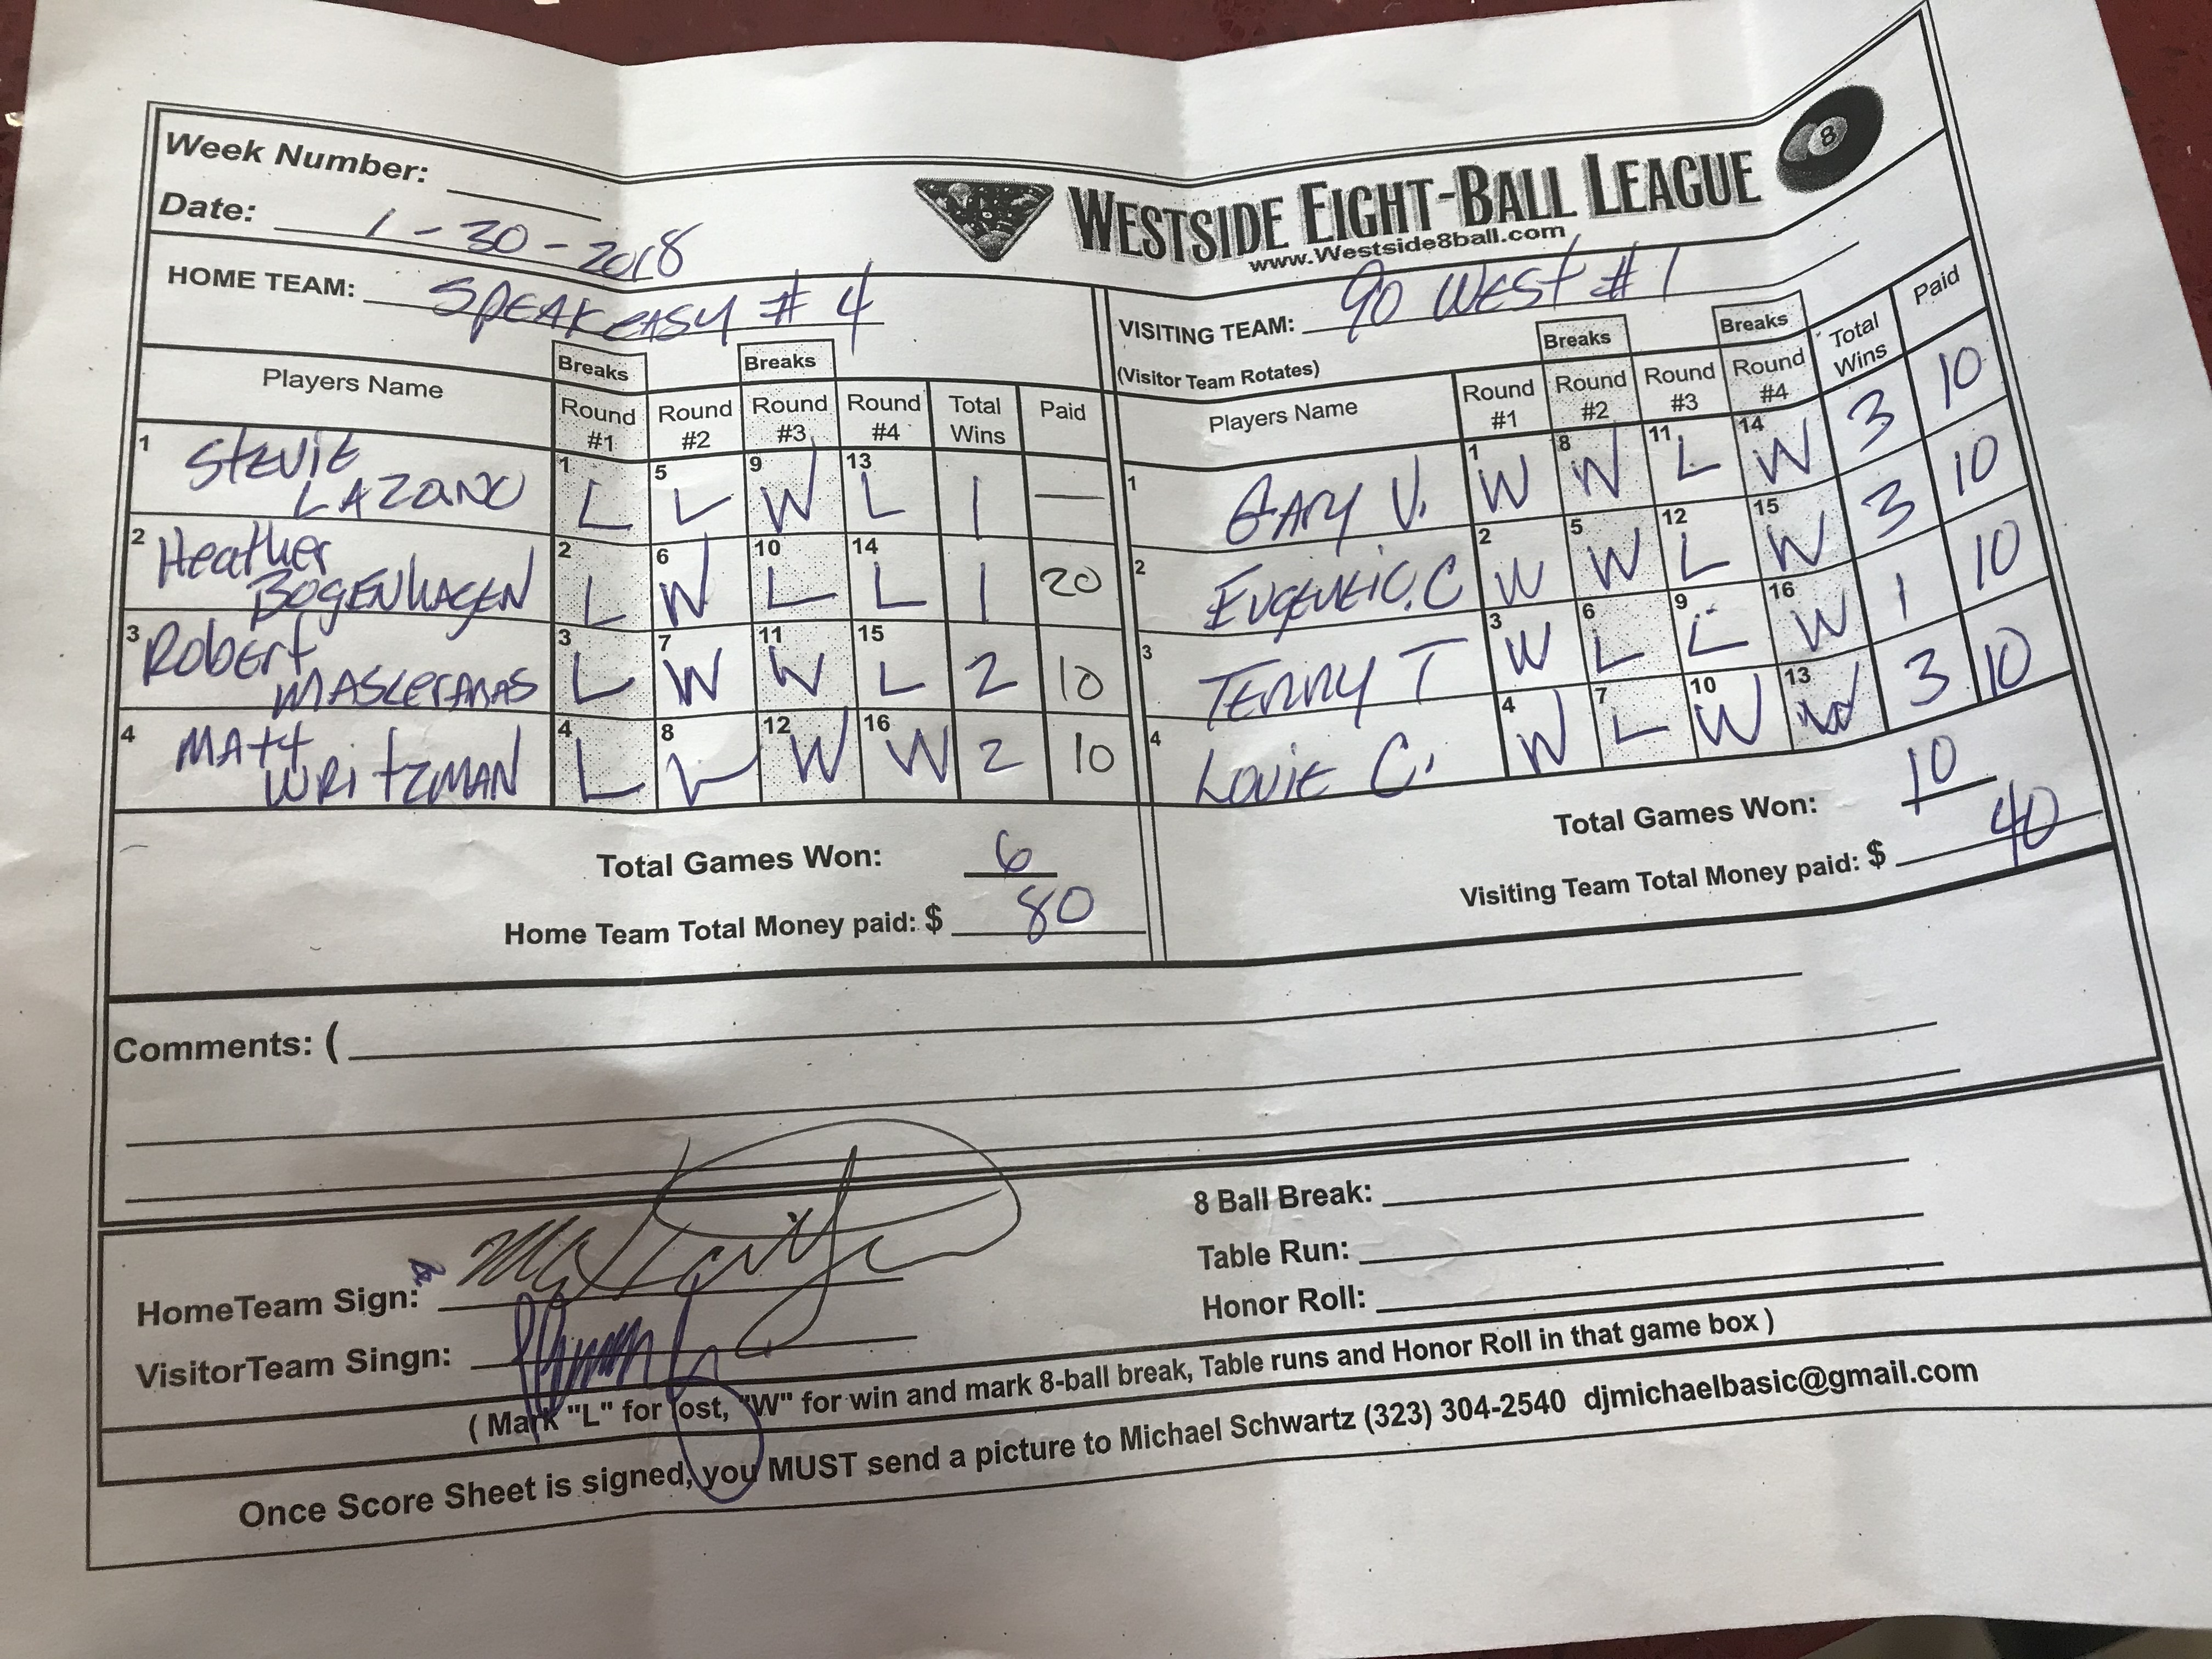 Week Number:
Date: 1-30-2018
WESTSIDE EIGHT-BALL LEAGUE
www.Westside8ball.com
8
HOME TEAM: SPEAKEASY #4
VISITING TEAM: 90 WEST #1
(Visitor Team Rotates)
Breaks Breaks
Players Name Round #1 Round #2 Round #3 Round #4 Total Wins Paid
1 STEVIE LAZANO 1 L 5 L 9 W 13 L 1 —
2 Heather BOGENHAGEN 2 L 6 W 10 L 14 L 1 20
3 Robert 3 L 7 W 11 W 15 L 2 10
4 MATT WRITZMAN 4 L 8 L 12 W 16 W 2 10
Total Games Won: 6
Home Team Total Money paid: $ 80
Breaks Breaks
Players Name Round #1 Round #2 Round #3 Round #4 Total Wins Paid
1 GARY V. 1 W 8 W 11 L 14 W 3 10
2 C 2 W 5 W 12 L 15 W 3 10
3 TERRY T 3 W 6 L 9 L 16 W 1 10
4 LOUIE C. 4 W 7 L 10 W 13 W 3 10
Total Games Won: 10
Visiting Team Total Money paid: $ 40
Comments: (
8 Ball Break:
Table Run:
Honor Roll:
HomeTeam Sign:
VisitorTeam Singn:
( Mark "L" for lost, "W" for win and mark 8-ball break, Table runs and Honor Roll in that game box )
Once Score Sheet is signed, you MUST send a picture to Michael Schwartz (323) 304-2540 djmichaelbasic@gmail.com